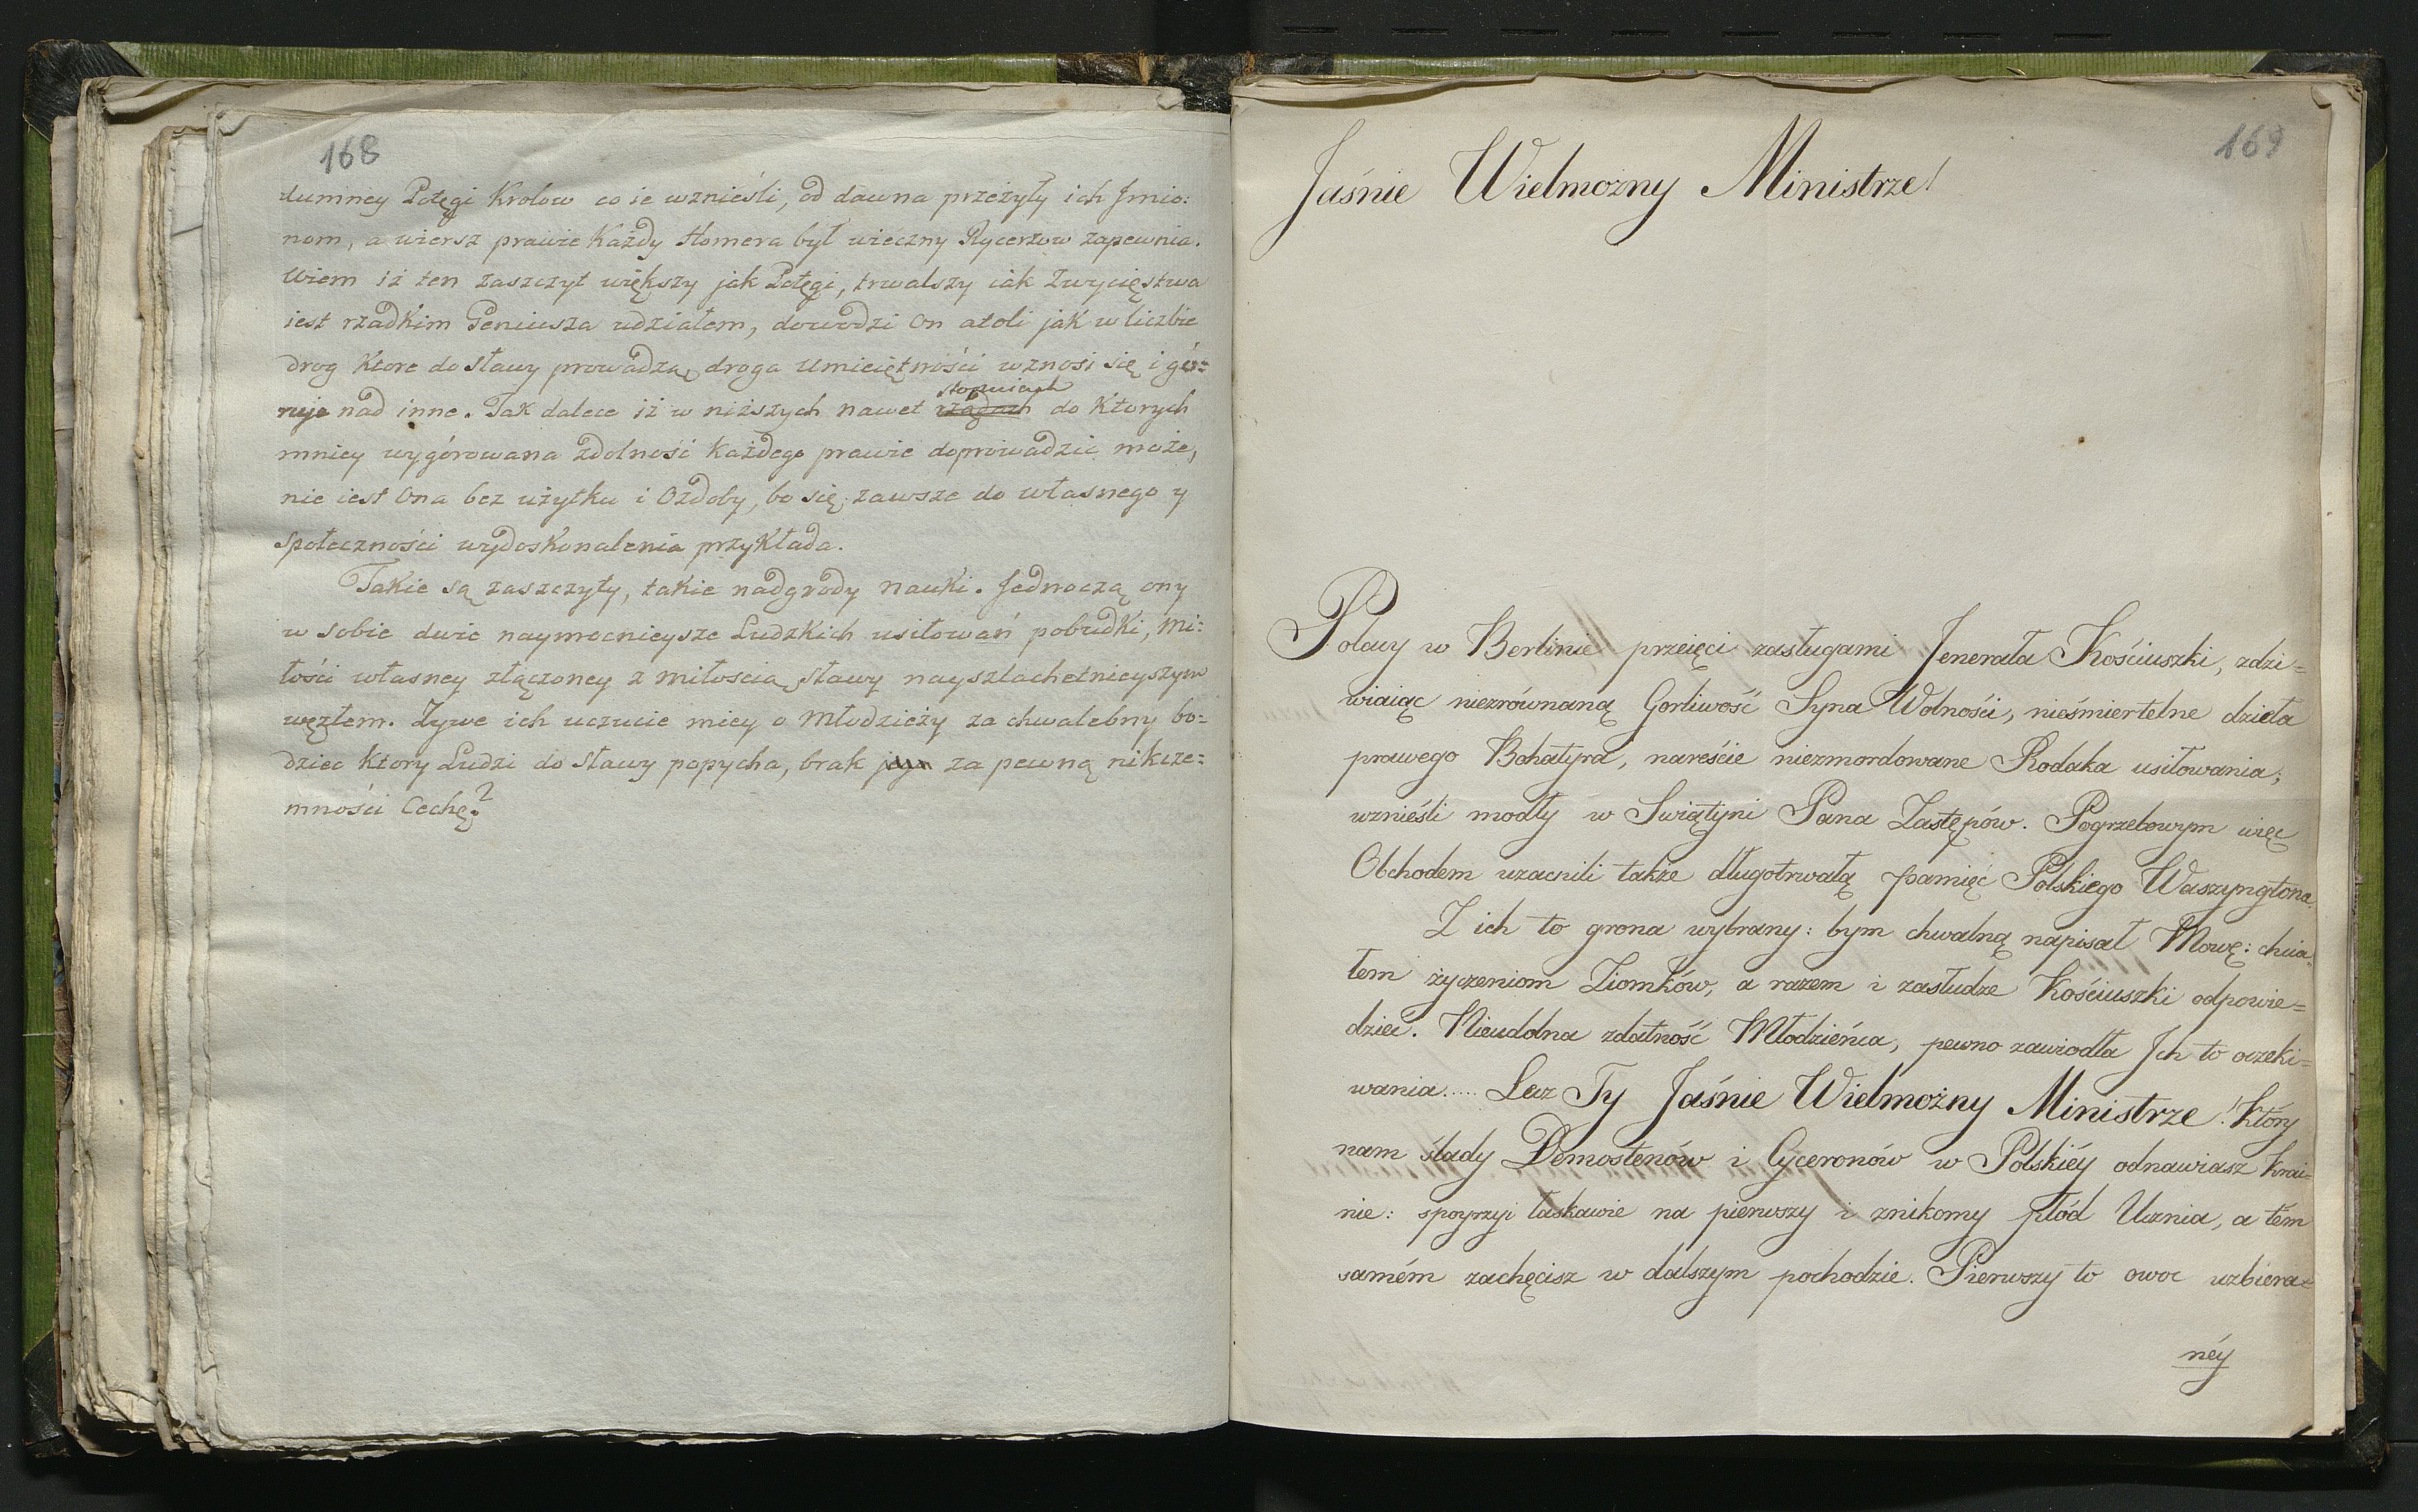 168
dumney Potęgi Krolow co ie wznieśli, od dawna przeżyły ich Jmio:
nom, a wiersz prawie Każdy Homera był wieczny Rycerzow zapewnia.
Wiem iż ten zaszczyt większy jak Potęgi, trwalszy iak Zwycięstwa
iest rzadkim Geniusza udziałem, dowodzi on atoli jak w liczbie
drog Ktore do sławy prowadzą, droga Umieiętności wznosi się i gó:
ruje nad inne. Tak dalece iż w niższych nawet rzędach stopniach do Ktorych
mniey wygórowana zdolność Każdego prawie doprowadzić może,
nie iest Ona bez użytku i Ozdoby, bo się zawsze do własnego y
społeczności wydoskonalenia przyKłada.
Takie są zaszczyty, takie nadgrody nauki. Jednoczą ony
w sobie dwie naymocnieysze Ludzkich usiłowań pobudki, Mi:
łości własney złączoney z miłoscią sławy nayszlachetnieyszym
węzłem. Żywe ich uczucie miey o Młodzieży za chwalebny bo:
dziec Ktory Ludzi do sławy popycha, brak za pewną nikcze:
mności Cechę?
169
Jaśnie Wielmożny Ministrze!
Polacy w Berlinie przeięci zasługami Jenerała Kościuszki, zdzi=
wiaiąc niezrównaną Gorliwość Syna Wolności, nieśmiertelne dzieła
prawego Bohatyra, nareście niezmordowane Rodaka usiłowania;
wznieśli modły w Swiątyni Pana Zastępów. Pogrzebowym więc
Obchodem uzacnili także długotrwałą pamięć Polskiego Waszyngtona.
Z ich to grona wybrany: bym chwalną napisał Mowę: chcia=
łem życzeniom Ziomków, a razem i zasłudze Kościuszki odpowie=
dzieć. Nieudolna zdatność Młodzieńca, pewno zawiodła Jch to oczeki=
wania..... Lecz Ty Jaśnie Wielmożny Ministrze! Który
nam ślady Demostenów i Cyceronów w Polskiéy odnawiasz Krai=
nie: spoyrzyi łaskawie na pierwszy i znikomy płód Ucznia, a tém
samém zachęcisz w dalszym pochodzie. Pierwszy to owoc uzbiera=
néy